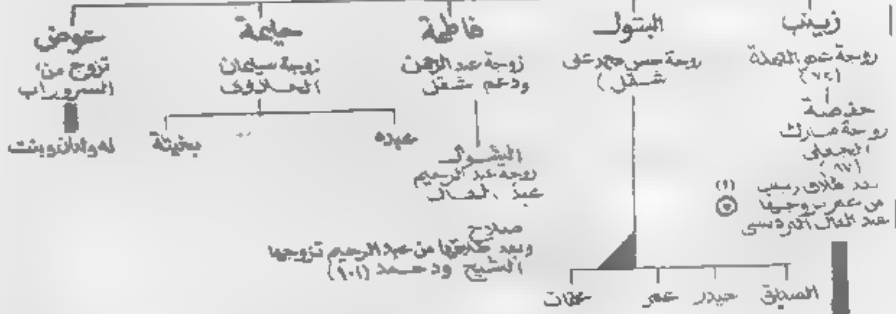 زينب
زوجة عمر التهلة
(٧٢)
حفصة
زوجة مبارك
الجعلى
(٩٧)
بعد طلاق زينب (١)
من عمر تزوجها
عبد العال الادريسى
البتول
زوجة حسن محمد على
شقل )
الصادق
حيدر
عمر
عنات
فاطمة
زوجة عبد الرحمن
ودعم شقل
البتول
زوجة عبد الرحيم
عبد العال
صلاح
وبعد طلاقها من عبد الرحيم تزوجها
الشيخ ود حمد (١٠٦)
حليمة
زوجة سليمان
عبده
بخيتة
عوض
تزوج من
السروراب
له ولدان وبنت